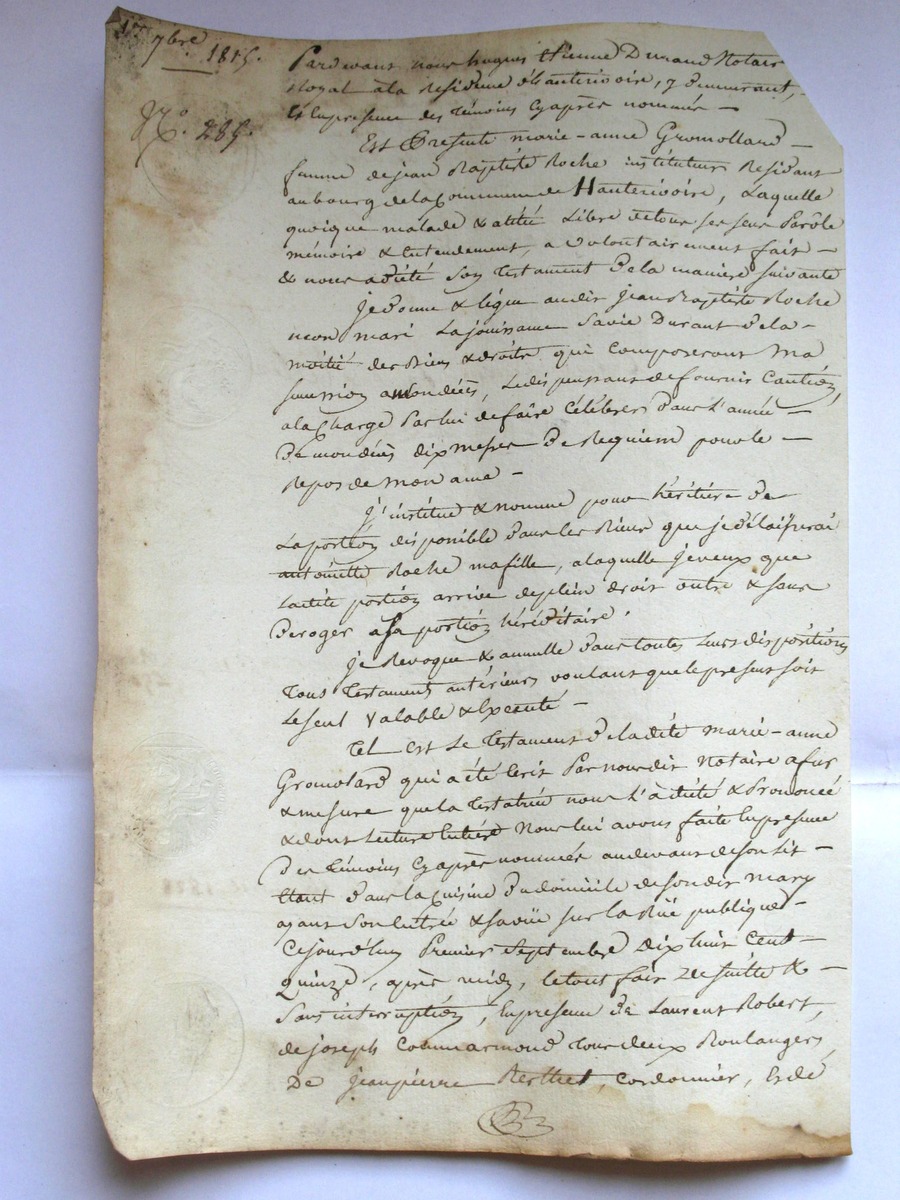 1er 7bre 1815.
No. 285.
Pardevant nous hugues Etienne Durand Notaire
Royal ala Residence d'hauterivoire, y demeurant,
Et En presence des Témoins Cyaprès nommés —
Est Presente marie-anne Gromollard —
femme de jean Baptiste Roche instituteur Residant
au bourg de la Commune de Hauterivoire, Laquelle
quoique malade & alitée Libre de tous ses sens Parole
mémoire & Entendement, a volontairement fait —
& nous adicté Son Testament De la maniere suivante
Je donne & légue audit jean Baptiste Roche
mon mari La jouissance Savie Durant De la —
moitié des Biens & droits qui Composeront Ma
succession amondécès, Le dispensant de fournir Caution,
ala Charge Par lui de faire Célébrer Dans L'année —
De mon décès dix messes De Requiem pour le —
Repos de Mon ame —
J'institue & nomme pour héritière De
La portion disponible Dans les Biens que je délaisserai
antoinette Roche ma fille, alaquelle je veux que
Ladite portion arrive de plein droit outre & sans
Deroger asa portion héréditaire.
Je Revoque & annulle Dans toutes Leurs dispositions
Tous Testaments antérieurs voulant que le present soit
Le seul Valable & Executé —
Tel Est Le Testament De ladite marie-anne
Gromolard qui a été Ecrit Par nous dit Notaire a fur
& mesure que la Testatrice nous L'a dicté & Prononcé
& dont Lecture Entière Nous lui avons faite En presence
Des Témoins Cyaprès nommés audevant de son Lit —
Etant Dans la Cuisine Du domicile de son dit mary
ayant Son Entrée & sa vüe sur la Rüe publique —
Cejourd'huy Premier Septembre Dix huit Cent —
Quinze, après midy, le tout fait de suitte & —
Sans interruption, En presence De Laurent Robert,
de joseph Coummarmond Tous deux Boulangers,
De jean pierre Berthet, Cordonnier, Et de